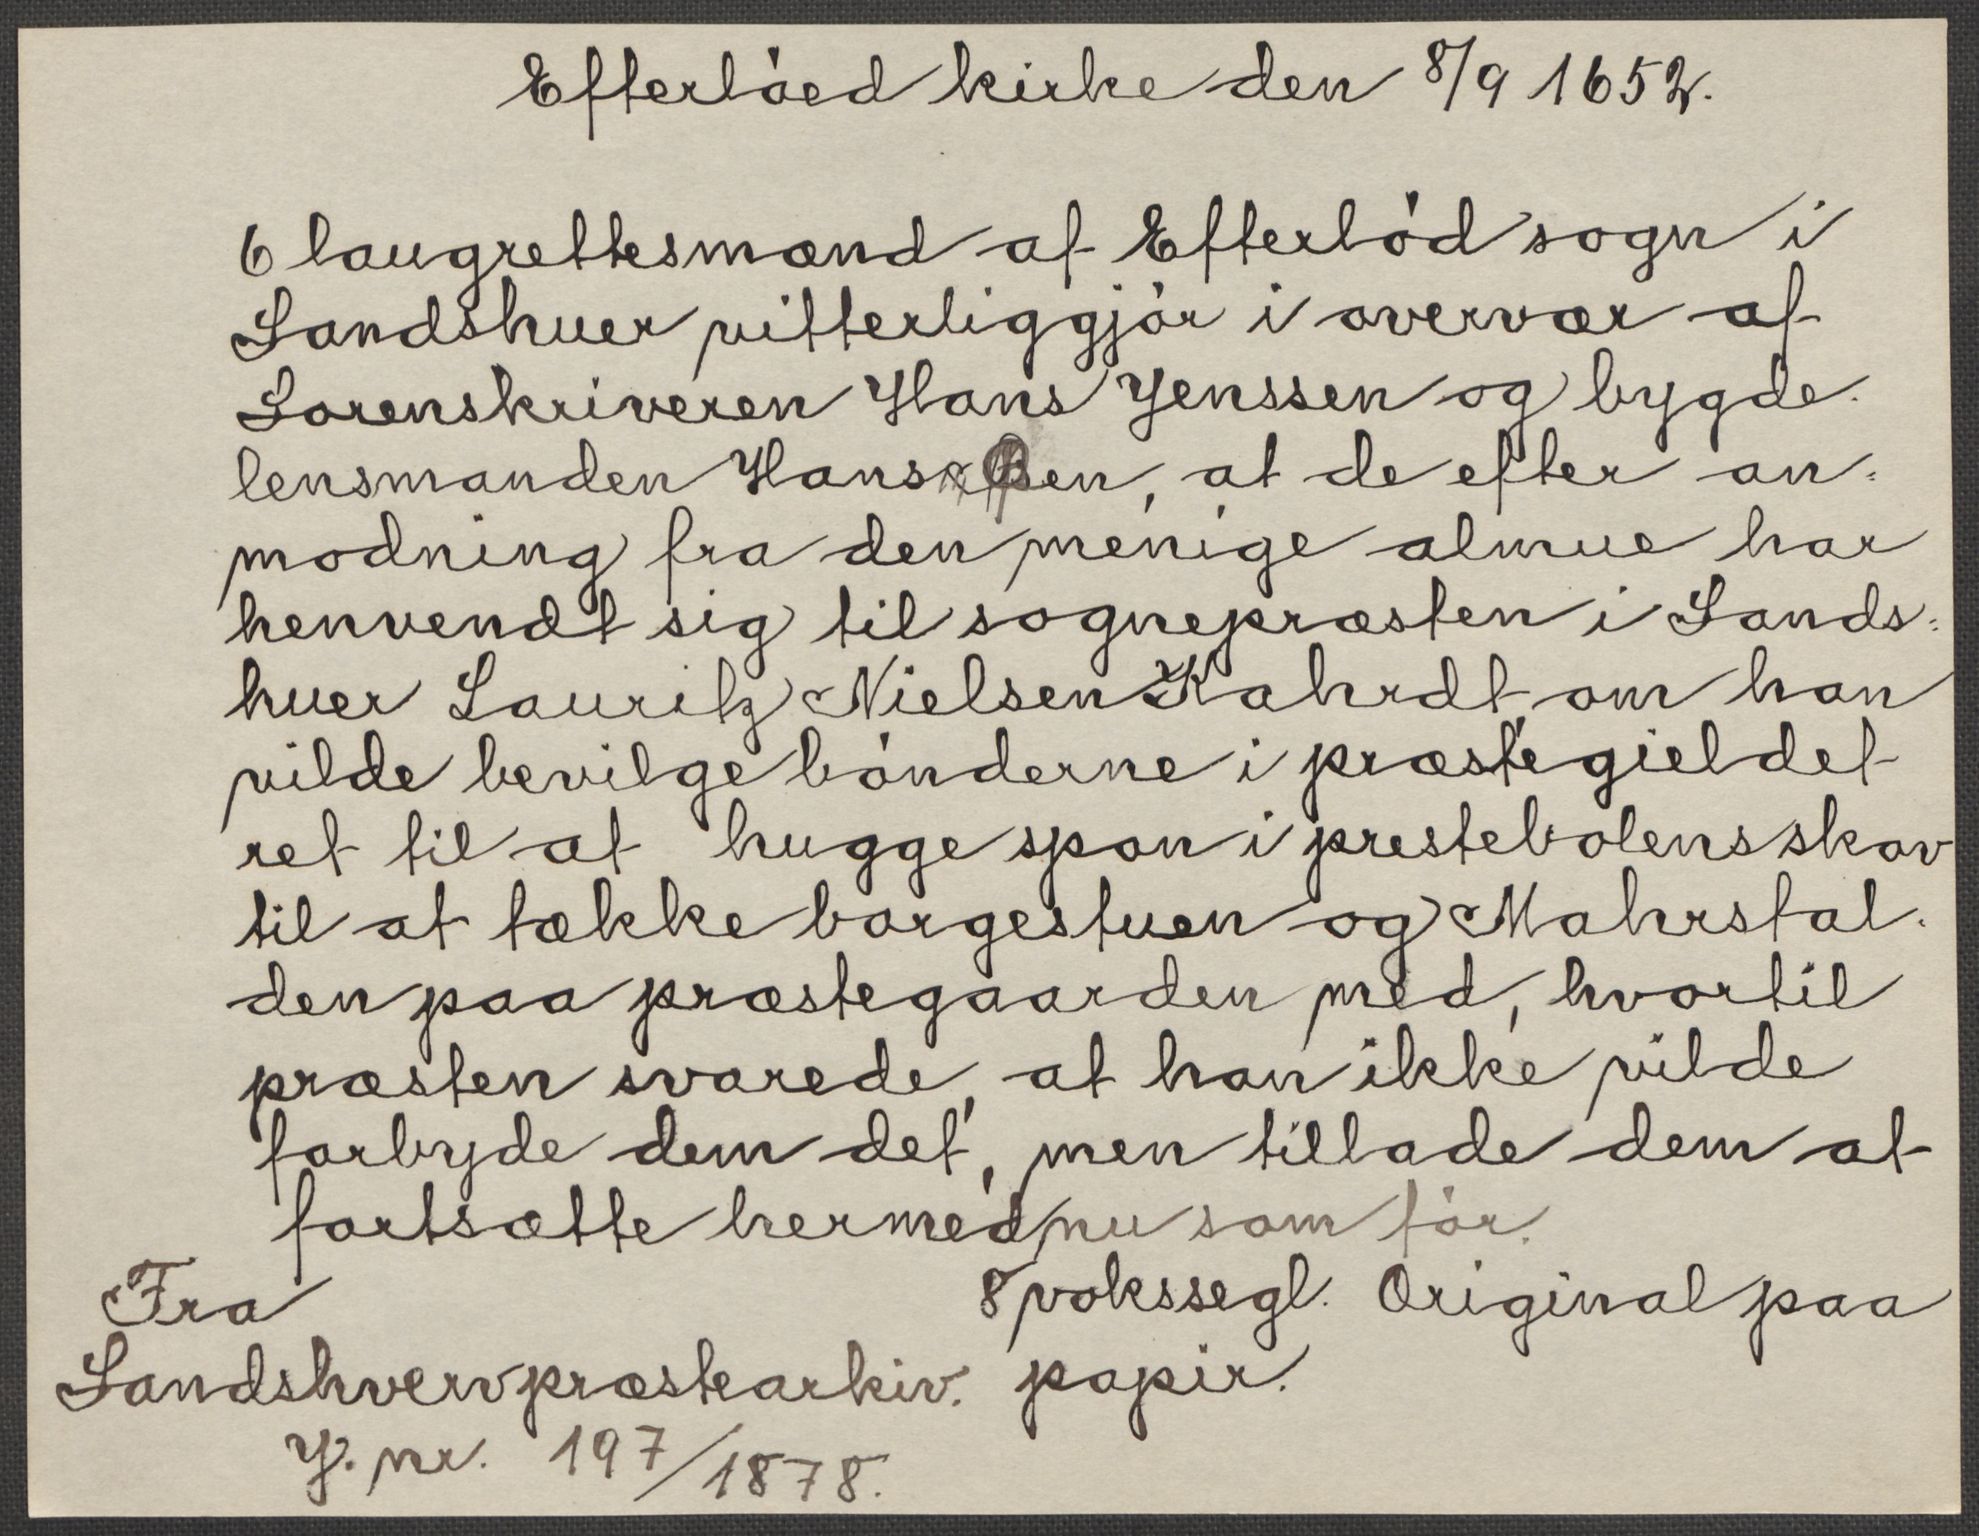 Efterlöed kirke den 8/9 1652.
6 laugrettesmænd af Efterlöd sogn i
Sandshuer vitterliggjör i overvær af
Sorenskriveren Hans Jenssen og bygde-
lensmanden Hans Olsen, at de efter an-
modning fra den menige almue har
henvendt sig til sognepræsten i Sands-
huer Lauritz Nielsen Kahrdt om han
vilde bevilge bönderne i præstegieldet
ret til at hugge spon i prestebolens skov
til at tække borgestuen og Mahrstal-
den paa præstegaarden med, hvortil
præsten svarede, at han ikke vilde
forbyde dem det, men tillade dem at
fortsætte hermed nu som för.
Fra 8 vokssegl. Original paa
Sandshverv præstearkiv. papir.
J. nr. 197/1878.